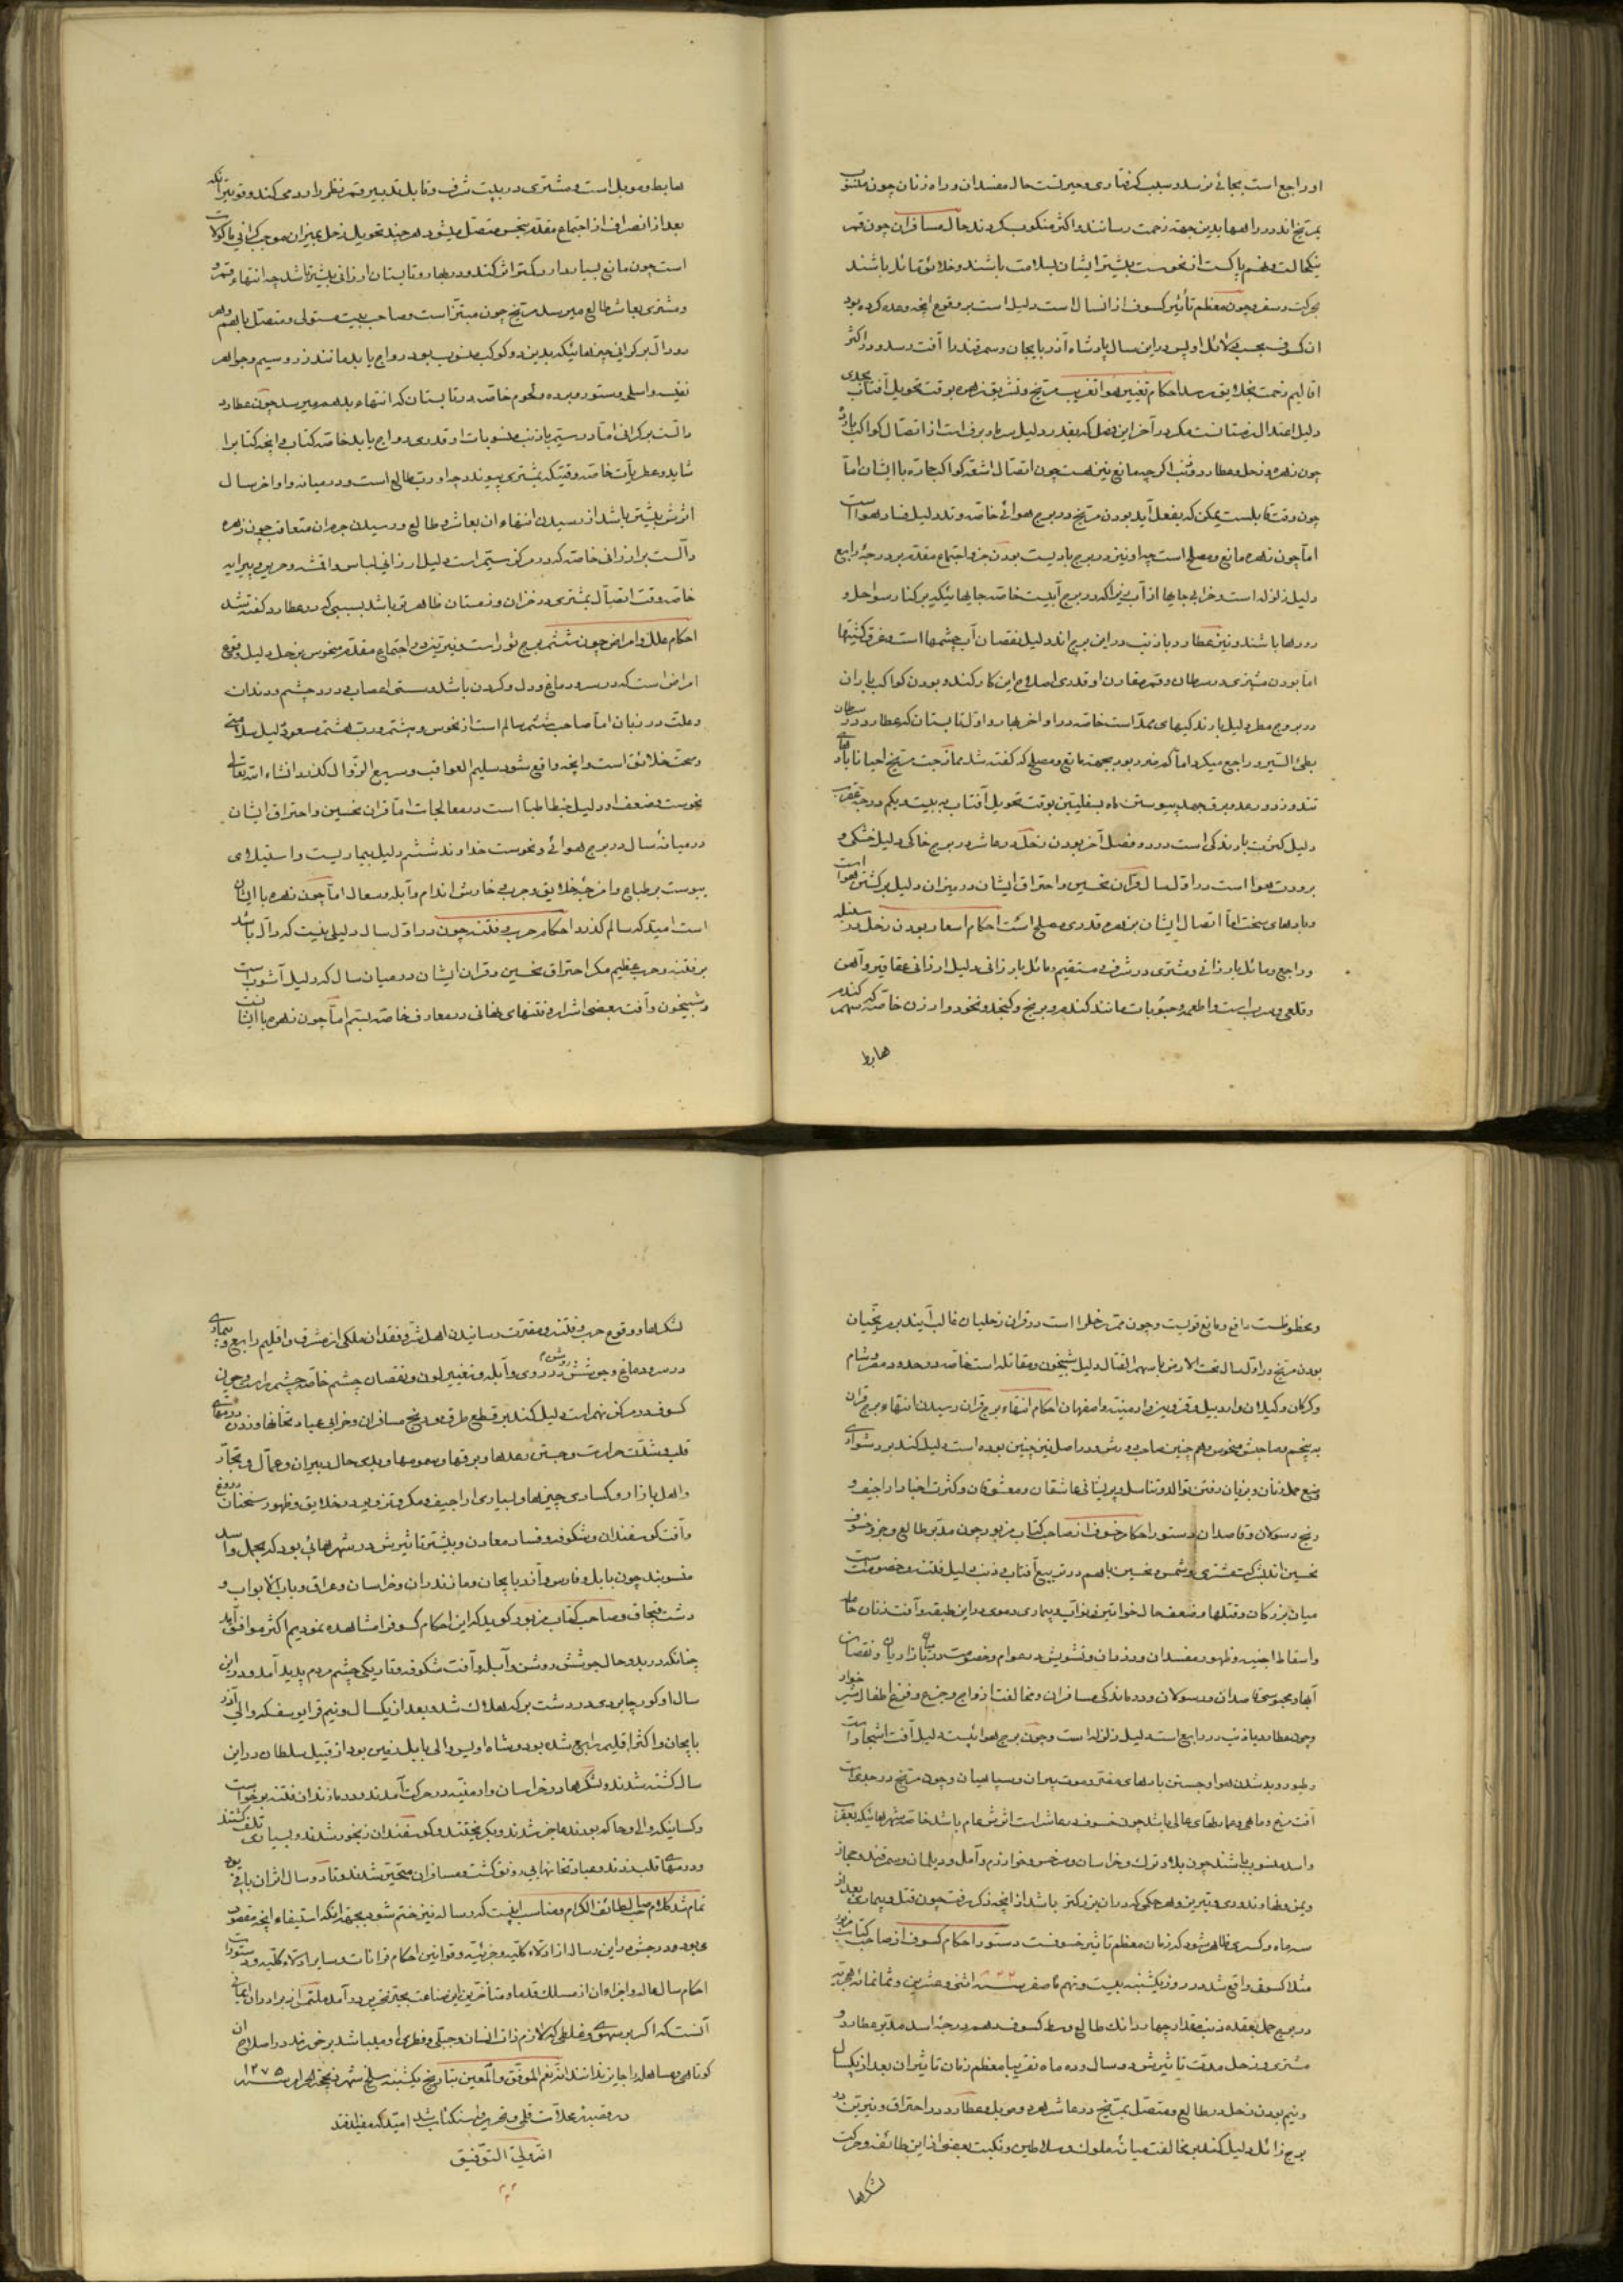 او راجع است بجائی نرسد و سبب گرفتاری و حیرتست حال مفسدان و راه زنان چون منسوب
بمریخ‌اند در راهها بدین جهة زحمت رسانند و اکثر منکوب گردند حال مسافران چون قمر
نیکحالست و نهم پاکست از نحوست بیشتر ایشان بسلامت باشند و خلائق مائل باشند
بحرکت و سفر و چون معظم تأثیر کسوف از انسال است دلیل است بر وقوع انچه وعده کرده بود
ان کسوف بحسب دلائل او پس در این سال پادشاه آذربایجان و سمرقند را آفت رسد و در اکثر
اقالیم زحمت بخلایق رسد احکام تغییر هوا تغریب مریخ و تشریق زهره بوقت تحویل آفتاب بجدی
دلیل اعتدال زمستانست مگر در آخر این فصل که بقدر دلیل سرما و برف است از اتصال کواکب بارده
چون زهره و زحل و عطارد و ذنب اگر چه مانع نیز هست چون اتصال اشعه کواکب حاره با ایشان اما
چون وقت قابلست یمکن که بفعل آید بودن مریخ در برج هوائی خاصه وتد دلیل فساد هوا است
اما چون زهره مانع و مصلح است چه او نیز در برج بادیست بودن جزو اجتماع مقدم بر درجهٔ رابع
دلیل زلزله است و خرابی جایها از آب زیرا که در برج آبیست خاصه جایهائیکه بر کنار سواحل و
رودها باشند و نیز عطارد با ذنب در این برج اند دلیل نقصان آب چشمها است و غرق کشتیها
اما بودن مشتری در سرطان و قمر مقارن او قدری اصلاح این کار کند و بودن کواکب باران
در بروج مطر دلیل بارندگیهای ممتد است خاصه در اواخر بهار و اول تابستان که عطارد در سرطان
بطئ السیر و راجع میگردد اما گه گه رود بود بجهة مانع و مصلح که گفته شد ممازجت مریخ احیانا بادهای
تند و زد و رعد و برق جهد پیوستن ماه بسفلیتین بوقت تحویل آفتاب به بیست و یکم درجهٔ عقرب
دلیل کثرت بارندگی است در دو فصل آخر بودن زحل در عاشر در برج خاکی دلیل خشکی و
برودت هوا است در اول سال قران نحسین و احتراق ایشان در میزان دلیل بر گشتن هوا است
و بادهای سخت اما اتصال ایشان بزهره قدری مصلح است احکام اسعار بودن زحل در سنبله
و راجع و مائل بارزانی و مشتری در شرف و مستقیم و مائل بارزانی دلیل ارزانی عقاقیر و آهن
و قلعی و سرب است و اطعمه و حبوبات مانند گندم و برنج و کنجد و نخود و ارزن خاصه گندم که سهمش
هابط
هابط و موبل است و مشتری در بیت شرف و قابل تدبیر قمر نظر را رد می کند و قویتر انکه
بعد از انصراف از اجتماع مقدم بنحس متصل میشود هر چند تحویل زحل بمیزان موجب گرانی ماکولات
است چون مانع بسیار دارد کمتر اثر کند و در بهار و تابستان ارزانی بیشتر باشد چه انتهاء قمر و
و مشتری بعاشر طالع میرسد مریخ چون مبتز است و صاحب بیت مستولی و متصل با بهم و هر
دو دال بر گرانی چیزهائیکه بدین دو کوکب منسوب بود رواج یابد مانند زر و سیم و جواهر
نفیسه و اسلحه و ستور و برده و لحوم خاصه در تابستان که انتهاء بدهم میرسد چون عطارد
دالست بر گرانی اما در ستم با ذنب منسوبات او قدری رواج یابد خاصه کتاب و انچه کتاب را
شاید و عطریات خاصه وقتیکه بمشتری پیوندد چه او رب طالع است و در میانه و اواخر سال
اثرش بیشتر باشد از رسیدن انتهاء ان بعاشر طالع و رسیدن جرم ان متعاقب چون زهره
دالست بر ارزانی خاصه که در مرکز ستم است دلیل ارزانی لباس و اقمشه و حریر و پیرایه
خاصه وقت اتصال بمشتری در خزان و زمستان ظاهرتر باشد بسببی که در عطارد گفته شد
احکام علل و امراض چون ششم برج ثور است و نیرین در اجتماع مقدم منحوس بزحل دلیل وقوع
امراض است که در سر و دماغ و دل و گردن باشد و سستی اعصاب و درد چشم و دندان
و علت در زبان اما صاحب ششم سالم است از نحوس و مشتری رب هشتم مسعود دلیل سلامتی
و صحت خلائق است و انچه واقع شود سلیم العواقب و سریع الزوال گذرد انشاء الله تعالی
نحوست و ضعف او دلیل خبط اطبا است در معالجات اما قران نحسین و احتراق ایشان
در میانهٔ سال در برج هوائی و نحوست خداوند ششم دلیل بیماریست و استیلای
یبوست بر طباع و امزجهٔ خلایق و جرب و خارش اندام و آبله و سعال اما چون زهره با ایشان
است امید که سالم گذرد احکام حرب و فتنه چون در اول سال دلیلی نیست که دال باشد
بر فتنه و حرب عظیم مگر احتراق نحسین و قران ایشان در میان سال که دلیل آشوب است
و شبیخون و آفت بعضی اشرار و فتنهای نهانی در معارف خاصه بستم اما چون زهره با ایشانست
و عظوظست رافع و مانع قویست و چون ممر زحل را است در قران زحلیان غالب آیند بر مریخیان
بودن مریخ در اول سال تحت الارض با سهم القتال دلیل شبیخون و مقاتله است خاصه در حدود مصر و شام
و گرگان و گیلان و اردبیل و قزوین و ارمنیه و اصفهان احکام انتهاء برج قران رسیدن انتهاء برج قران
به پنجم و صاحبش منحوس و هم چنین صاحب دورش و در اصل نیز چنین بوده است دلیل کند بر دشواری
وضع حمل زنان و بزیان رفتن توالد و تناسل و پریشانی عاشقان و معشوقان و کثرت اخبار اراجیف و
رنج رسولان و قاصدان دستور احکام خسوف از صاحب کتاب مزبور چون مدبر طالع و جزو خسوف
نحسین‌اند بشرکت مشتری و شمس و نحسین با هم در تربیع آفتاب و ذنب دلیل فتنه و خصومت است
میان بزرگان و قتلها و ضعف حال خواتین و نوائب و بیماری دموی در این طبقه و آفت زنان حامله
و اسقاط اجنه و ظهور مفسدان و دزدان و تشویش در عوام و خصومت در میان بازاریان و نقصان
آبها و محبوسی قاصدان و رسولان و درماندگی مسافران و مخالفت ازواج و جزع و فزع اطفال شیر خوار
و چون عطارد با ذنب در رابع است دلیل زلزله است و چون برج هوائیست دلیل آفت اشجار است
و طیور و بد شدن هوا و جستن بادهای مضر و موت پیران و سپاهیان و چون مریخ در جدی است
آفت مرغ و ماهی و عمارتهای عالی باشد چون خسوف در عاشر است اثرش عام باشد خاصه شهرهائیکه بعقرب
و اسد منسوب باشند چون بلاد ترک و خراسان و سرخس و خوارزم و آمل و دیلمان و سمرقند و حجاز
و یمن و نهاوند و ری و تبریز و هر حکمی که در ان بزرگتر باشد از انچه ذکر رفت چون قتل و بیماری بعد از
سه ماه و کسری ظاهر شود که زمان معظم تاثیر خسوفست دستور احکام کسوف از صاحب کتاب مزبور
مثلا کسوف واقع شد در روز یکشنبه بیست و نهم ماه صفر سنه ۸۲۲ اثنی و عشرین و ثمانمائه هجریه
در برج حمل بعقده ذنب مقدار چهار دانک طالع وسط کسوف دهم درجهٔ اسد مدبر عطارد و
مشتری و زحل مدت تاثیرش دو سال و ده ماه تقریبا معظم زمان تاثیر ان بعد از یکسال
و نیم بودن زحل در طالع و متصل بمریخ در عاشر هر دو موبل و عطارد در احتراق و نیرین در
برج زائل دلیل کند بر مخالفت میان ملوک و سلاطین و نکبت بعضی از این طائفه و حرکت
لشکرها
لشکرها و وقوع حرب و فتنه و مضرت رسانیدن اهل شر و فقدان ملکی از مشرق و اقلیم رابع و بیماری
در سر و دماغ و جوشش در روی و آبله و تغییر لون و نقصان چشم خاصه چشم راست و چون
کسوف در مرکز نهم است دلیل کند بر قطع طرق و رنج مسافران و خرابی عبادتخانها و زدن درمهای
قلب و شدت حرارت و جستن رعدها و برقها و سمومها و بدی حال دبیران و عمال و تجار
و اهل بازار و کسادی چیزها و بسیاری اراجیف و مکر و تزویر در خلایق و ظهور سخنان دروغ
و آفت گوسفندان و شکوفه و فساد معادن و بیشتر تاثیرش در شهرهائی بود که بحمل و اسد
منسوبند چون بابل و فارس و آذربایجان و مازندران و خراسان و عراق و باب الابواب و
دشت قبچاق و صاحب کتاب مزبور گوید که این احکام کسوف را مشاهده نمودیم اکثر موافق آمد
چنانکه در بدو حال جوشش روی و آبله و آفت شکوفه و تاریکی چشم مردم پدید آمد و در این
سال اوکور چابری در دشت برکه هلاک شد و بعد از یکسال و نیم قرایوسف که والی آذر
بایجان و اکثر اقلیم رابع شده بود و شاه اویس والی بابل زمین بود از قبیل سلطان در این
سال کشته شدند و لشکرها در خراسان و ارمنیه در حرکت آمدند و در مازندران فتنه برخواست
و کسانیکه والی و حاکم بودند عاجز شدند و بگریختند و گوسفندان رنجور شدند و بسیاری تلف گشتند
و درمهای قلب زدند و عبادتخانها بی رونق گشت و مسافران متحیر شدند و تا دو سال اثر ان باقی بود
تمام شد کلام صاحب لطائف الکرام و مناسب انیست که رساله نیز ختم شود بجهة انکه استیفاء انچه مقصود
می‌بود در جشن در این رساله از ادلاء کلیه و جزئیه و قوانین احکام قرانات و سایر ادلاء کلیه و دستورات
احکام سال عالم و اجزاء ان از مسلک قدما و متأخرین این صناعت بحیز تحریر در آمد ملتمس از برادران ایمانی
آنست که اگر بر سهوی و غلطی که لازم ذات انسان و جبلی و فطری او میباشد بر خورند در اصلاح ان
کوتاهی و مساهله را جایز ندانند انه نعم الموفق و المعین بتاریخ یکشنبه سلخ شهر ذیحجة الحرام سنه ۱۲۷۵
امید که مفید افتد
انه ولی التوفیق